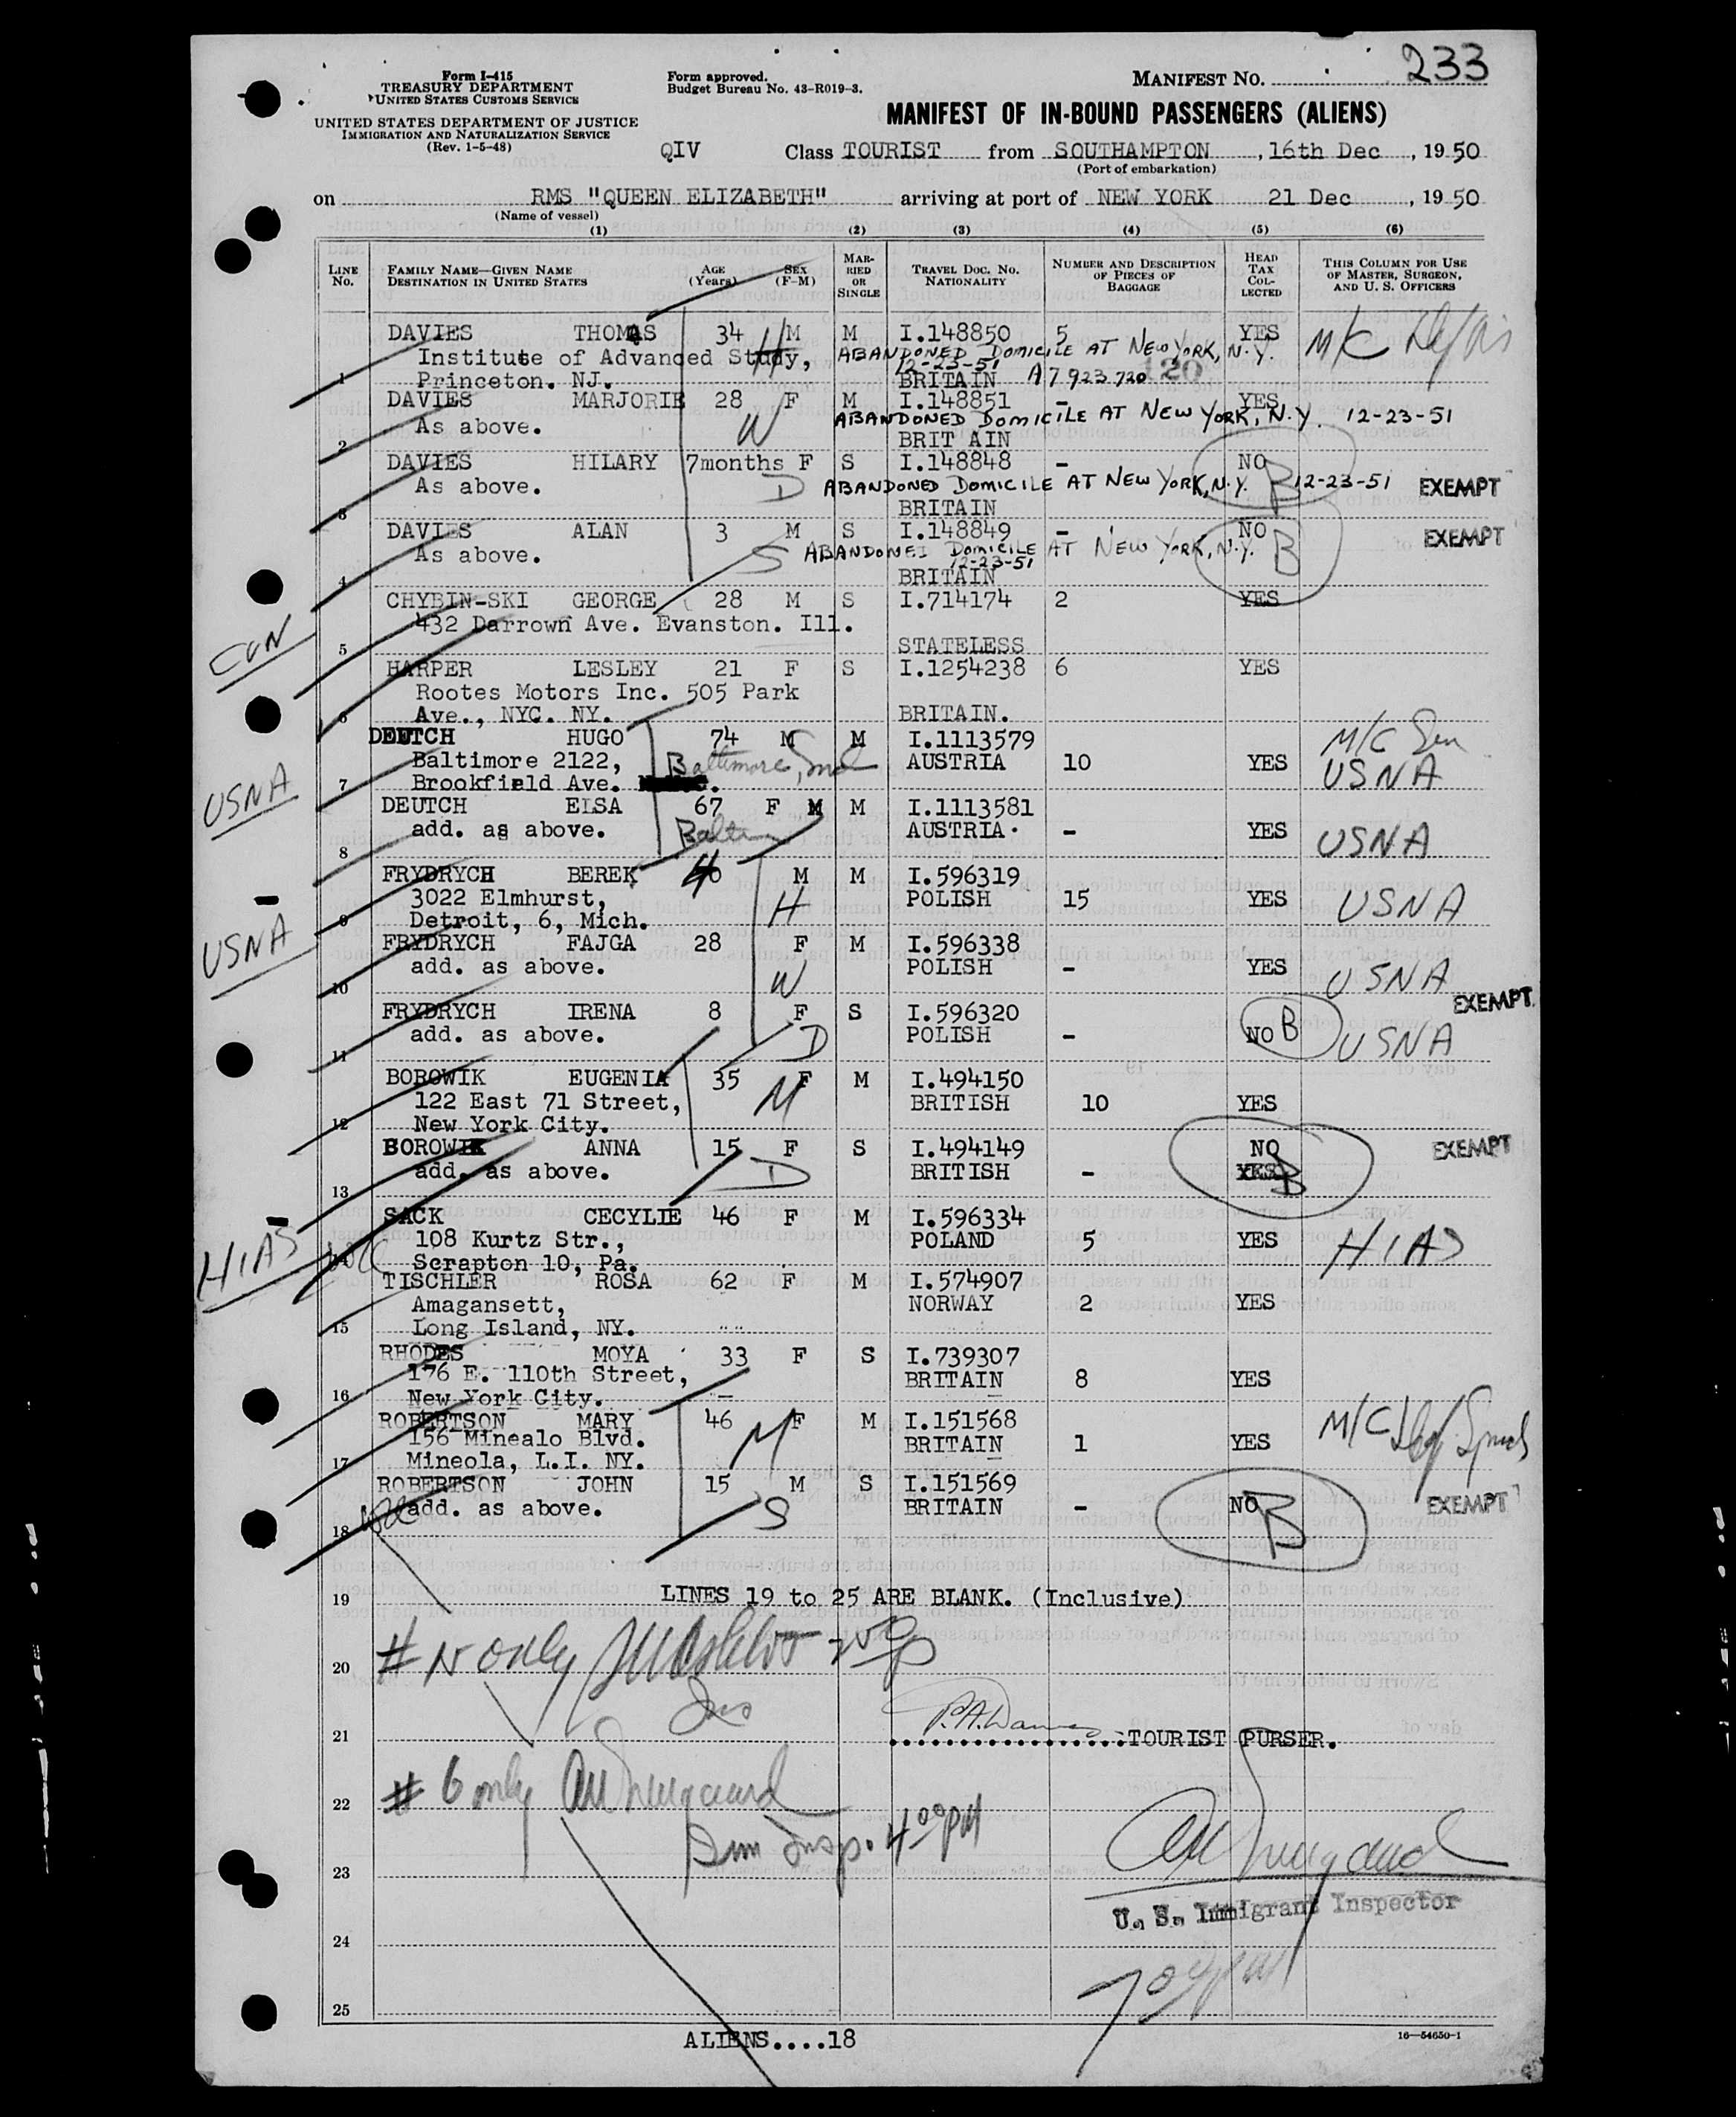 233
Form I-415
TREASURY DEPARTMENT
UNITED STATES CUSTOMS SERVICE
UNITED STATES DEPARTMENT OF JUSTICE
IMMIGRATION AND NATURALIZATION SERVICE
(Rev. 1-5-48)
Form approved.
Budget Bureau No. 43-R019-3.
MANIFEST NO.
MANIFEST OF IN-BOUND PASSENGERS (ALIENS)
QIV Class TOURIST from SOUTHAMPTON, 16th Dec, 1950
(Port of embarkation)
on RMS "QUEEN ELIZABETH" arriving at port of NEW YORK 21 Dec, 1950
(Name of vessel)
(1) (2) (3) (4) (5) (6)
LINE NO.
FAMILY NAME—GIVEN NAME
DESTINATION IN UNITED STATES
AGE (Years)
SEX (F-M)
MARRIED OR SINGLE
TRAVEL DOC. NO.
NATIONALITY
NUMBER AND DESCRIPTION OF PIECES OF BAGGAGE
HEAD TAX COLLECTED
THIS COLUMN FOR USE OF MASTER, SURGEON, AND U. S. OFFICERS
DAVIES THOMAS 34 M M I.148850 5 YES M/C
Institute of Advanced Study, H ABANDONED DOMICILE AT NEW YORK, N.Y.
12-23-51
1 Princeton. NJ. BRITAIN A7 923 720 120
DAVIES MARJORIE 28 F M I.148851 - YES
As above. W ABANDONED DOMICILE AT NEW YORK, N.Y. 12-23-51
2 BRIT AIN
DAVIES HILARY 7months F S I.148848 - NO
As above. D ABANDONED DOMICILE AT NEW YORK, N.Y. B 12-23-51 EXEMPT
3 BRITAIN
DAVIES ALAN 3 M S I.148849 - NO EXEMPT
As above. S ABANDONED DOMICILE AT NEW YORK, N.Y. B
12-23-51
4 BRITAIN
CHYBIN-SKI GEORGE 28 M S I.714174 2 YES
CON 432 Darrown Ave. Evanston. Ill.
5 STATELESS
HARPER LESLEY 21 F S I.1254238 6 YES
Rootes Motors Inc. 505 Park
6 Ave., NYC. NY. BRITAIN.
DEUTCH HUGO 74 M M I.1113579 M/C
Baltimore 2122, Baltimore, Md AUSTRIA 10 YES USNA
USNA 7 Brookfield Ave.
DEUTCH ELSA 67 F M I.1113581
add. as above. AUSTRIA. - YES USNA
8
FRYDRYCH BEREK 40 M M I.596319
3022 Elmhurst, H POLISH 15 YES USNA
9 Detroit, 6, Mich.
USNA FRYDRYCH FAJGA 28 F M I.596338
add. as above. POLISH - YES USNA
10 W
FRYDRYCH IRENA 8 F S I.596320 EXEMPT
add. as above. D POLISH - NO B USNA
11
BOROWIK EUGENIA 35 F M I.494150
122 East 71 Street, M BRITISH 10 YES
12 New York City.
BOROWIK ANNA 15 F S I.494149 NO EXEMPT
add. as above. D BRITISH - B
13
SACK CECYLIE 46 F M I.596334
HIAS 108 Kurtz Str., POLAND 5 YES HIAS
Scrapton 10, Pa.
TISCHLER ROSA 62 F M I.574907
Amagansett, NORWAY 2 YES
15 Long Island, NY.
RHODES MOYA 33 F S I.739307
176 E. 110th Street, BRITAIN 8 YES
16 New York City.
ROBERTSON MARY 46 F M I.151568 M/C
156 Minealo Blvd. M BRITAIN 1 YES
17 Mineola, L.I. NY.
ROBERTSON JOHN 15 M S I.151569
add. as above. S BRITAIN - NO B EXEMPT
18
19 LINES 19 to 25 ARE BLANK. (Inclusive)
20 only
21 TOURIST PURSER.
22 # 6 only
Imm Insp. 4 00 PM
23
U. S. Immigrant Inspector
24
25
ALIENS....18
16—54650-1